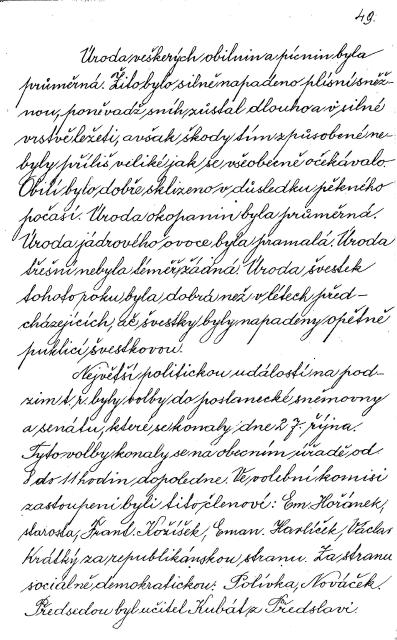 49.
Úroda veškerých obilnin a pícnin byla
průměrná. Žito bylo silně napadeno plísní sněž-
nou, poněvadž sníh zůstal dlouho a v silné
vrstvě ležeti, avšak škody tím způsobené ne-
byly příliš veliké jak se všeobecně očekávalo.
Obilí bylo dobře sklizeno v důsledku pěkného
počasí. Úroda okopanin byla průměrná.
Úroda jádrového ovoce byla pramalá. Úroda
třešní nebyla téměř žádná. Úroda švestek
tohoto roku byla dobrá než v létech před-
cházejících, ač švestky byly napadeny opětně
puklicí švestkovou.
Největší politickou událostí na pod-
zim t. r. byly volby do poslanecké sněmovny
a senátu, které se konaly dne 27. října.
Tyto volby konaly se na obecním úřadě od
8 do 11 hodin dopoledne. Ve volební komisi
zastoupeni byli tito členové: Em. Hořánek,
starosta, Frant. Kožíšek, Eman. Harlíček, Václav
Krátký za republikánskou stranu. Za stranu
sociálně demokratickou: Polívka, Nováček.
Předsedou byl učitel Kubát z Předslavi